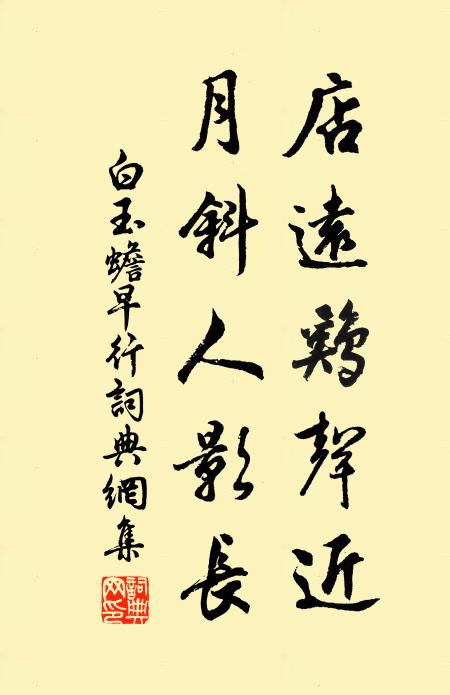 店遠鷄聲近
月斜人影長
白玉蟾早行詞典網集
詞典網印